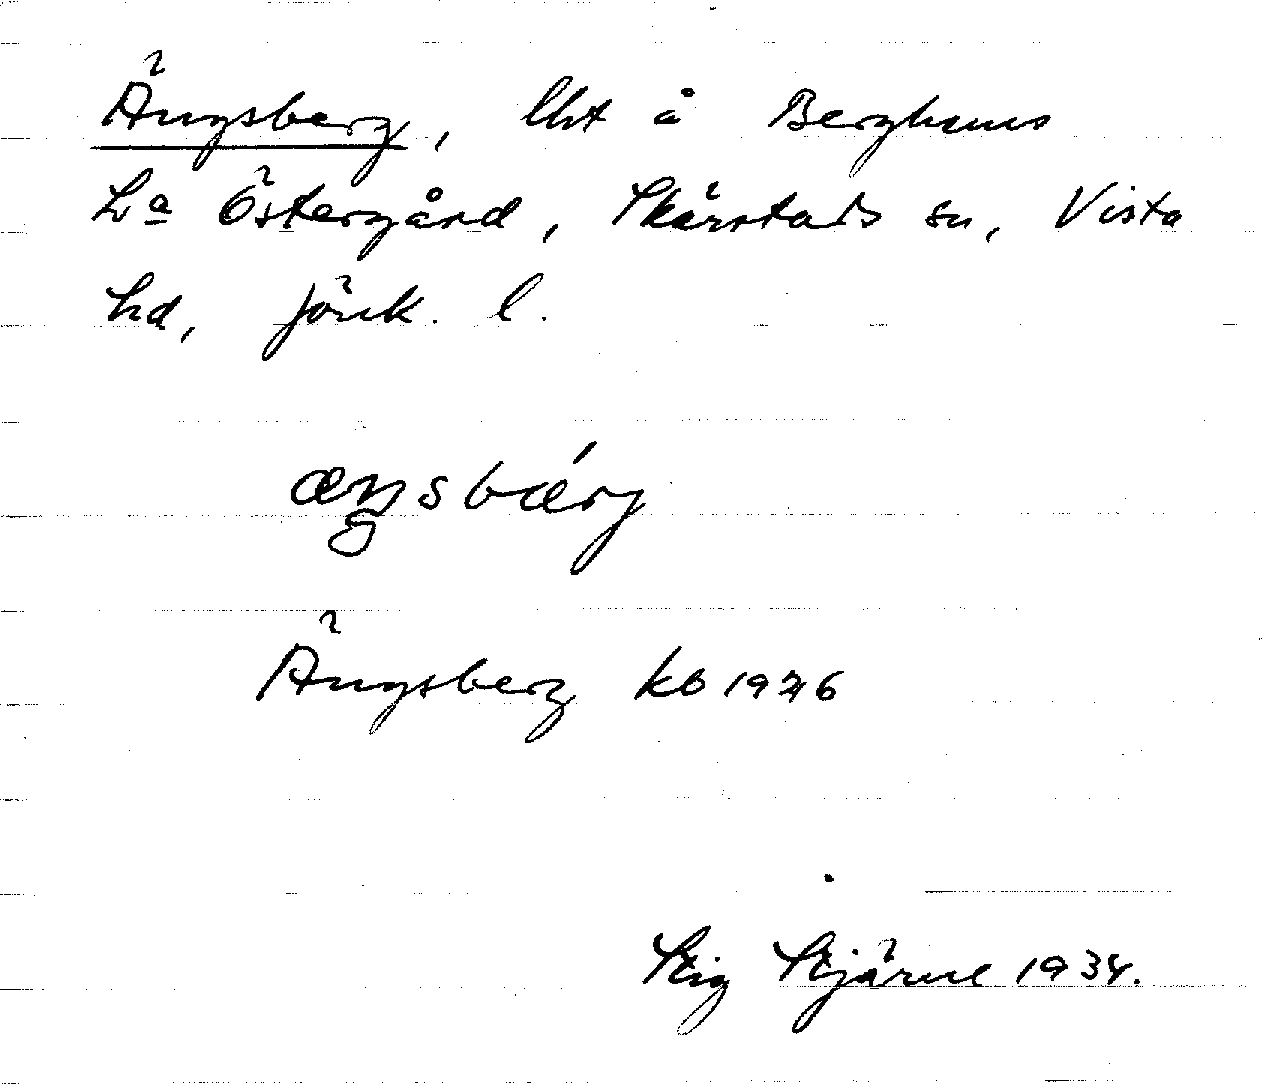 Ängsberg, lht å Berghems
La Östergård, Skärstads sn, Vista
hd, Jönk. l.
æŋsbærj
Ängsberg kb 1926
Stig Stjärne 1934.